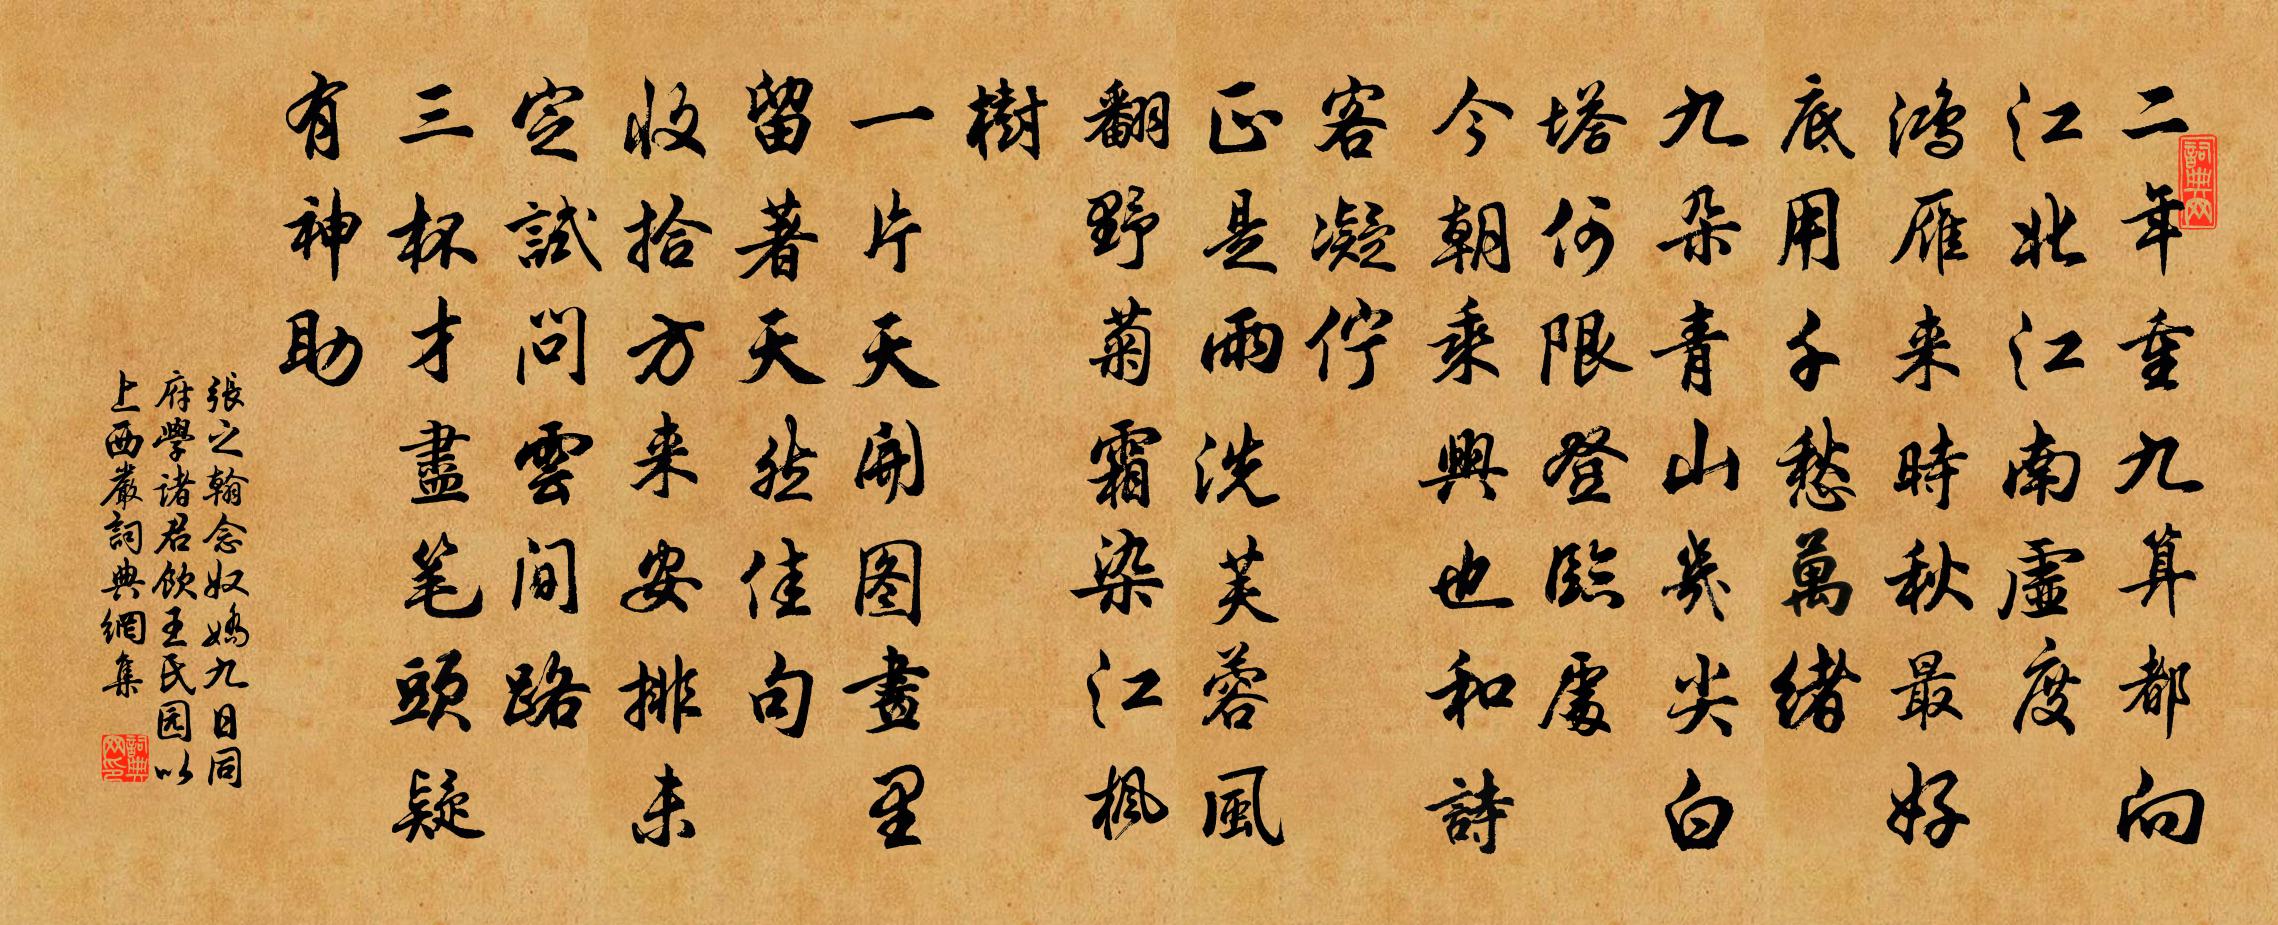 二年重九算都向
江北江南虛度
鴻雁来時秋最好
底用千愁萬緒
九朵青山幾尖白
塔何限登臨處
今朝乘興也和詩
客凝佇
正是雨洗芙蓉風
翻野菊霜染江楓
樹
一片天開图畫里
留著天然佳句
收拾方来安排未
定試問雲間路
三杯才盡笔頭疑
有神助
張之翰念奴嬌九日同
府學諸君飲王氏园以
上西巖詞典網集
詞典网
詞典网印